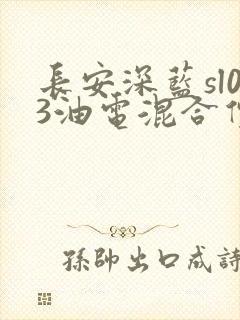 長安深藍sl0
3油電混合
孫帥出口成詩